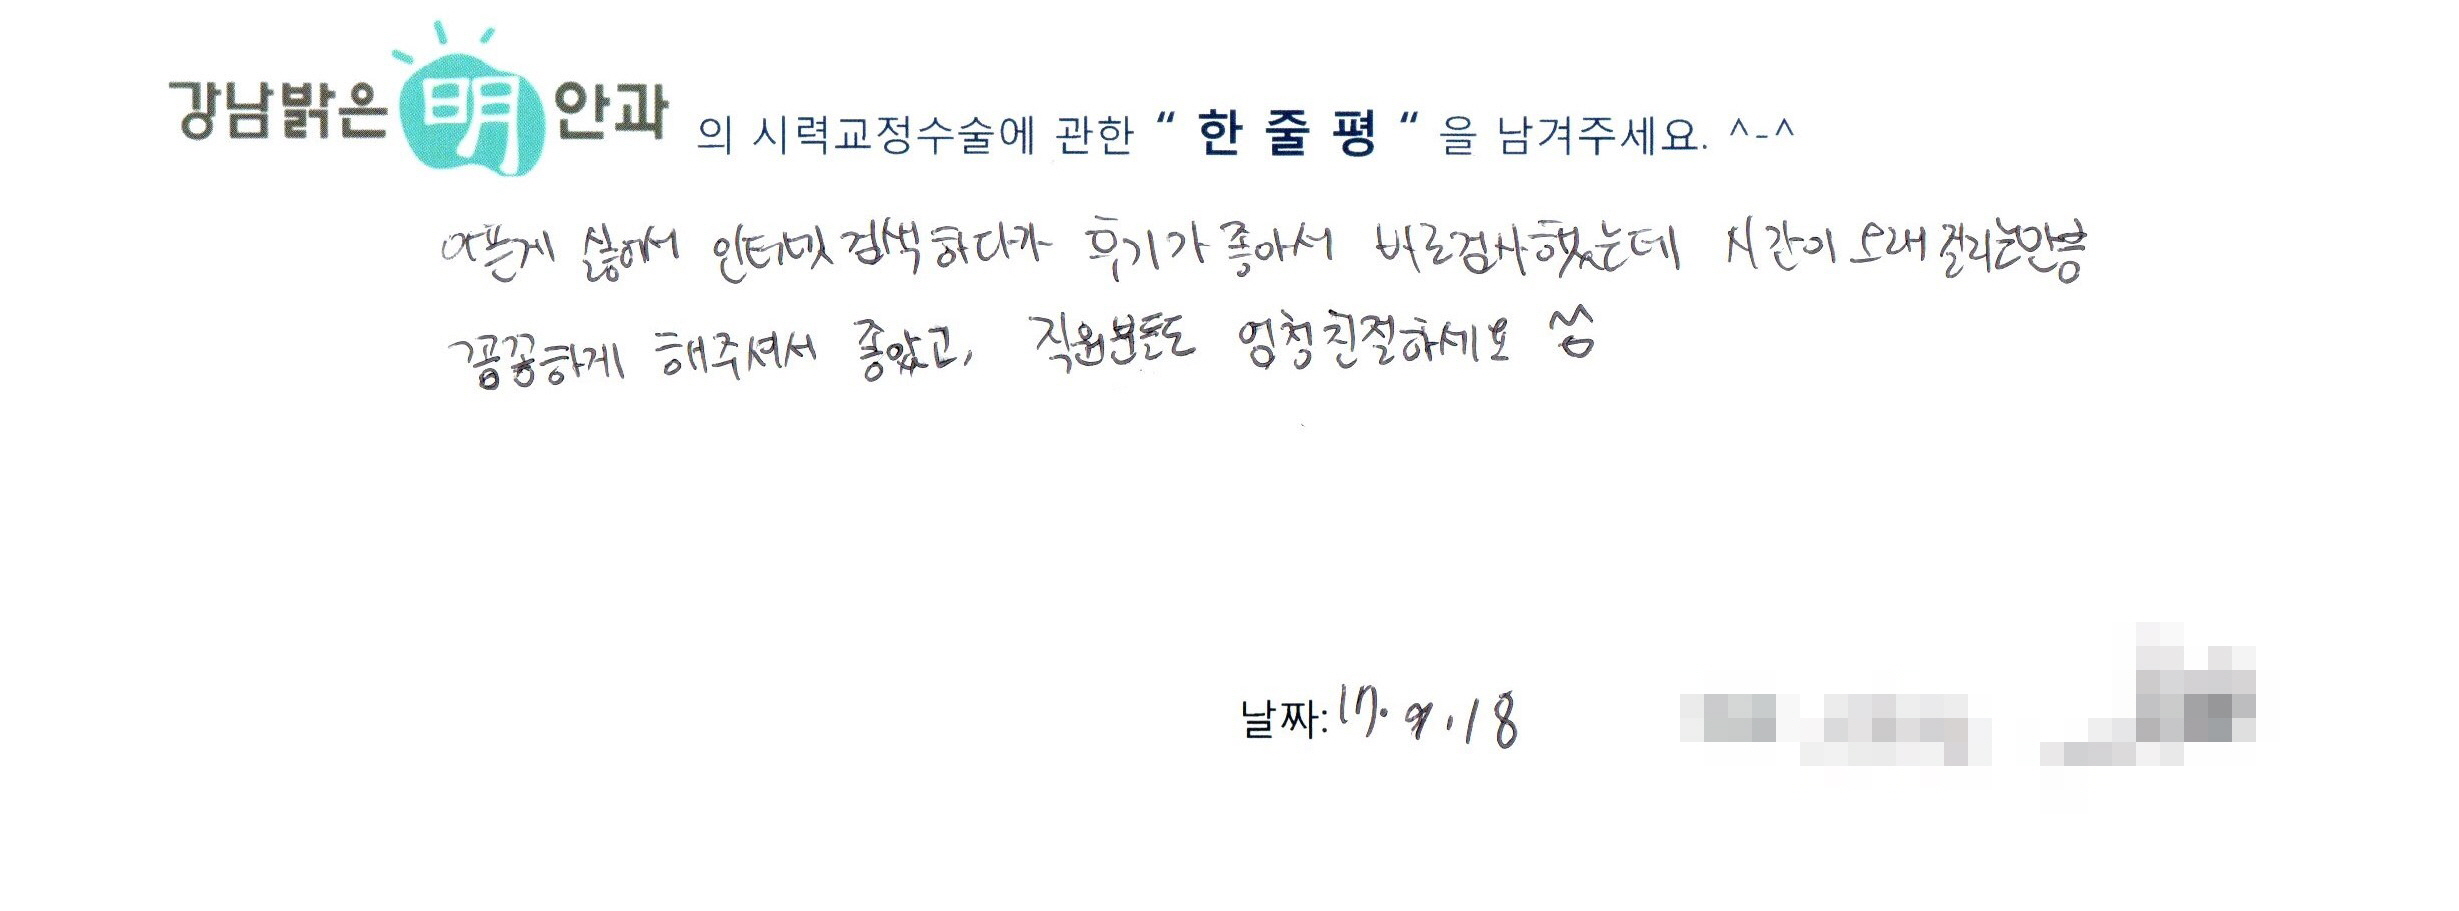 강남밝은 明 안과 의 시력교정수술에 관한 “ 한 줄 평 “ 을 남겨주세요. ^-^
아픈게 싫어서 인터넷 검색하다가 후기가 좋아서 바로검사했는데 시간이 오래 걸리는만큼
꼼꼼하게 해주셔서 좋았고, 직원분들도 엄청친절하세요 ^^
날짜: 17. 9. 18